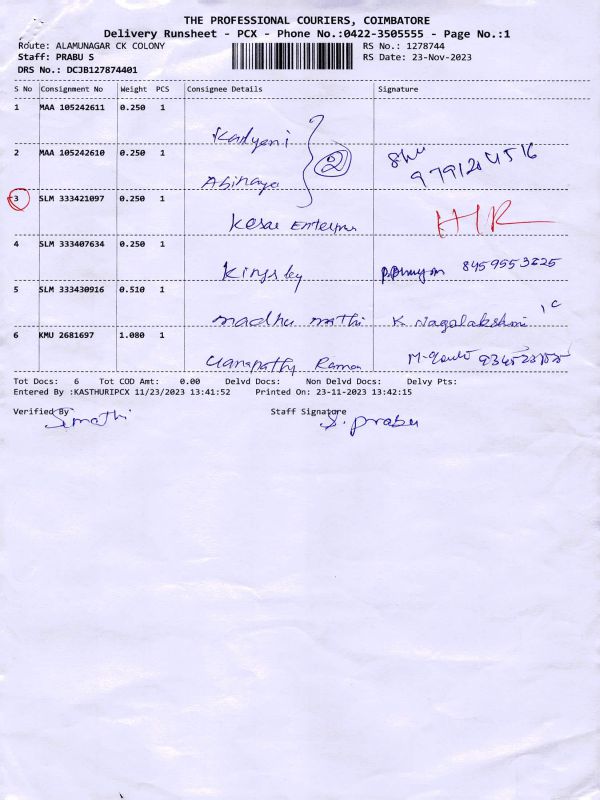 THE PROFESSIONAL COURIERS, COIMBATORE
Delivery Runsheet - PCX - Phone No.:0422-3505555 - Page No.:1
Route: ALAMUNAGAR CK COLONY RS No.: 1278744
Staff: PRABU S RS Date: 23-Nov-2023
DRS No.: DCJB127874401
S No Consignment No Weight PCS Consignee Details Signature
1 MAA 105242611 0.250 1
Kadyeni
2 MAA 105242610 0.250 1 2
Abinaya
3 SLM 333421097 0.250 1 HR
Kesar Enterprises
4 SLM 333407634 0.250 1
Kingsley
5 SLM 333430916 0.510 1
madhu mathi K Nagalakshmi
6 KMU 2681697 1.080 1
Ganapathy Raman
Tot Docs: 6 Tot COD Amt: 0.00 Delvd Docs: Non Delvd Docs: Delvy Pts:
Entered By :KASTHURIPCX 11/23/2023 13:41:52 Printed On: 23-11-2023 13:42:15
Verified By Staff Signature
S. prabu